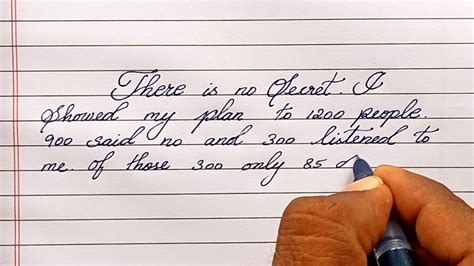 There is no Secret. I
Showed my plan to 1200 people.
900 said no and 300 listened to
me. of those 300 only 85